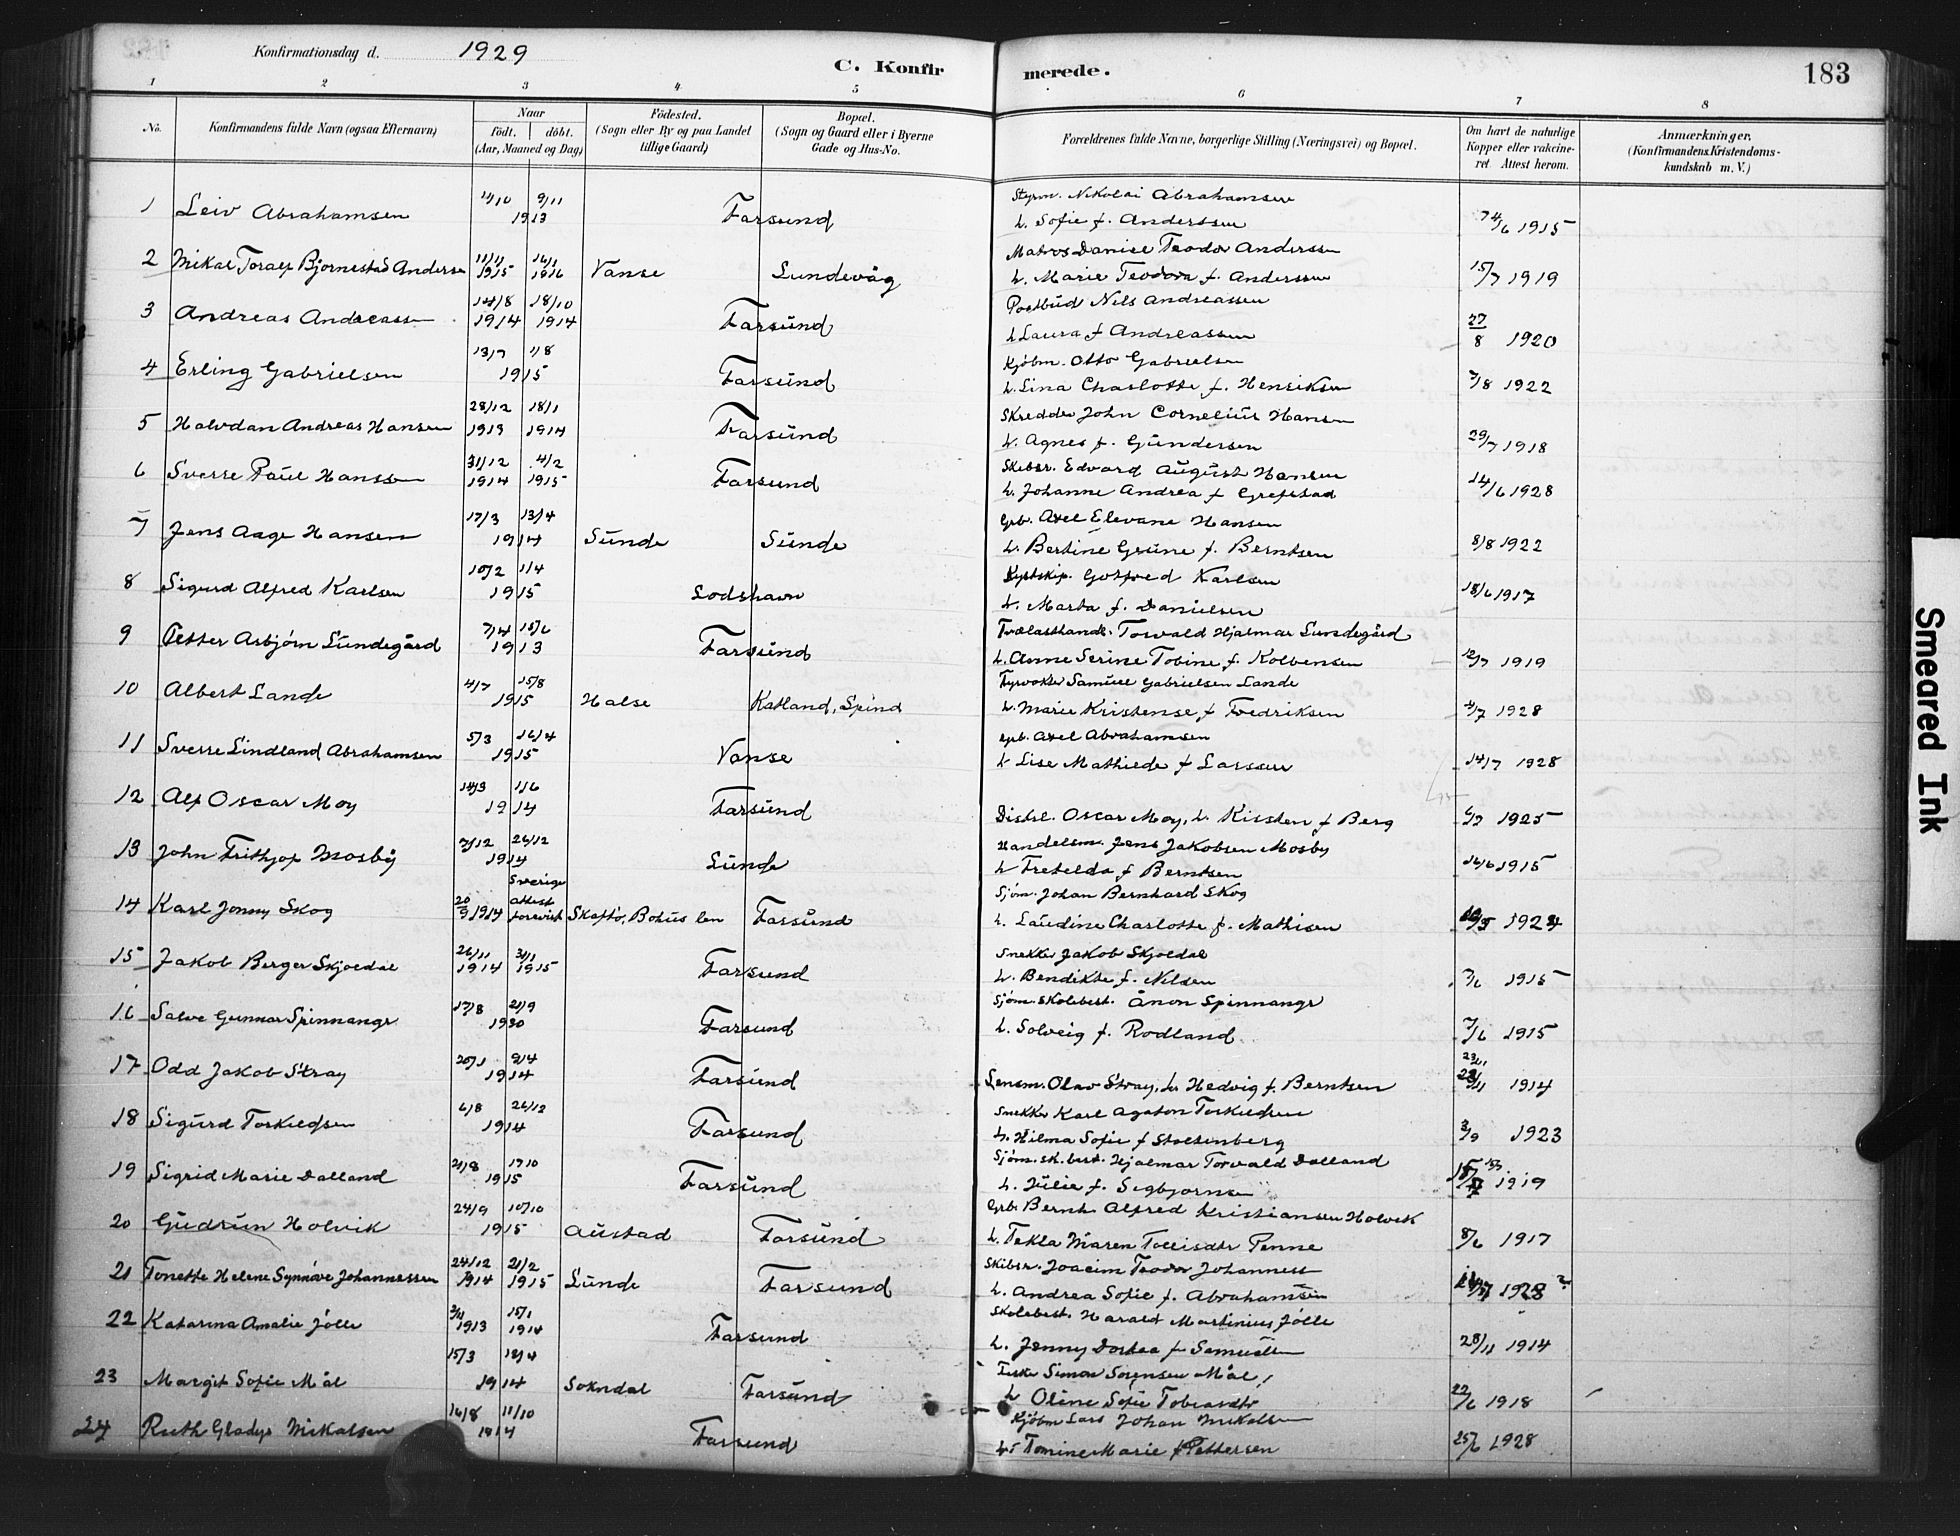 Konfirmationsdag d. 1929
C. Konfirmerede.
183
1 2 3 4 5 6 7 8
No.
Konfirmandens fulde Navn (ogsaa Efternavn)
Naar
født. døbt.
(Aar, Maaned og Dag)
Fødested.
(Sogn eller By og paa Landet
tillige Gaard)
Bopæl.
(Sogn og Gaard eller i Byerne
Gade og Hus-No.
Forældrenes fulde Navne, borgerlige Stilling (Næringsvei) og Bopæl.
Om havt de naturlige
Kopper eller vakcine-
ret. Attest herom.
Anmærkninger.
(Konfirmandens Kristendoms-
kundskab m. V.)
Styrm. Nikolai Abrahamsen
1 Leiv Abrahamsen 11/10 9/11 1913 Farsund
h. Sofie f. Anderssen 1915
Matros Daniel Teodor Anderssen
2 Mikal Toralf Bjørnestad Anderse 11/11 1915 16/1 1916 Vanse Lundevåg
h. Marie Teodora f. Anderssen 15/7 1919
Postbud Nils Andreassen
3 Andreas Andreassen 14/8 1914 18/10 1914 Farsund
h Laura f Andreassen 27/8 1920
Kjøbm. Otto Gabrielsen
4 Erling Gabrielsen 13/7 1/8 1915 Farsund
h. Lina Charlotte f. Henriksen 7/8 1922
Skredder John Cornelius Hansen
5 Halvdan Andreas Hansen 28/12 1913 18/1 1914 Farsund
h. Agnes f. Gundersen 29/7 1918
Skibsr. Edvard August Hansen
6 Sverre Paul Hanssen 31/12 1914 4/2 1915 Farsund
h. Johanne Andrea f Grefstad 14/6 1928
Grb. Axel Elevane Hansen
7 Jens Aage Hansen 17/3 13/4 1914 Sunde Sunde
h. Bertine Grüne f. Berntsen 8/8 1922
Kystskip. Gotfred Karlsen
8 Sigurd Alfred Karlsen 10/2 1/4 1915 Lodshavn
h. Marta f. Danielsen 18/6 1917
Trælasthandl. Torvald Hjalmar Lundegård
9 Petter Asbjørn Lundegård 7/4 15/6 1913 Farsund
h. Anne Serine Tobine f. Kolbensen 12/7 1919
Fyrvokter Samuel Gabrielsen Lande
10 Albert Lande 4/7 15/8 1915 Halse Katland, Spind
h. Marie Kristense f Fredriksen 4/7 1928
grb. Axel Abrahamsen
11 Sverre Lindland Abrahamsen 5/3 16/4 1915 Vanse
h Lise Mathilde f Larssen 14/7 1928
12 Alf Oscar Moy 14/3 1/6 1914 Farsund
Distrl. Oscar Moy, h. Kirsten f Berg 1925
Handelsm. Jens Jakobsen Mosby
13 John Frithjof Mosby 7/12 26/12 1914 Lunde
h Fretelda f Berntsen 16/6 1915
Sverige
attest
Sjøm. Johan Bernhard Skog
14 Karl Jonny Skog 20/9 1914 forevist Skaftø, Bohus len Farsund
h. Laudine Charlotte f. Mathisen 1924
Snekker Jakob Skjoldal
15 Jakob Berger Skjoldal 26/11 1914 31/1 1915 Farsund
h. Bendikte f. Nilsen 7/6 1915
Sjøm. skolebest. Ånon Spinnangr
16 Salve Gunnar Spinnangr 17/8 21/9 1930 Farsund
h. Solveig f. Rodland 7/6 1915
23/11
17 Odd Jakob Stray 20/1 9/4 1914 Farsund
Lensm. Olav Stray, h. Hedvig f. Berntsen 1914
Snekker Karl Agaton Torkildsen
18 Sigurd Torkildsen 6/8 26/12 1914 Farsund
h. Hilma Sofie f Stoltenberg 3/9 1923
Sjøm. sk.best. Hjalmar Torvald Dalland
19 Sigrid Marie Dalland 21/8 17/10 1915 Farsund
h. Julie f. Segbjornsen 1919
Grb. Bernh. Alfred Kristiansen Holvik
20 Gudrun Holvik 24/9 10/10 1915 Austad Farsund
h. Tekla Maren Tollisdtr Penne 8/6 1917
Skibsr. Joacim Teodor Johanness
21 Tonette Helene Synnøve Johannessen 24/12 1914 21/2 1915 Lunde Farsund
h. Andrea Sofie f. Abrahamsen 1928
Skolebest. Harald Martinius Jølle
22 Katarina Amalie Jølle 2/11 1913 15/1 1914 Farsund
h. Jenny Dortea f Samuelsen 28/11 1914
Fisker Simon Sørensen Mål
23 Margit Sofie Mål 15/3 12/4 1914 Sokndal Farsund
h Oline Sofie Tobiasdtr 22/6 1918
Kjøbm Lars Johan Mikalsen
24 Ruth Gladys Mikalsen 16/8 11/10 1914 Farsund
h. Tomine Marie f Pettersen 25/6 1928
Smeared Ink